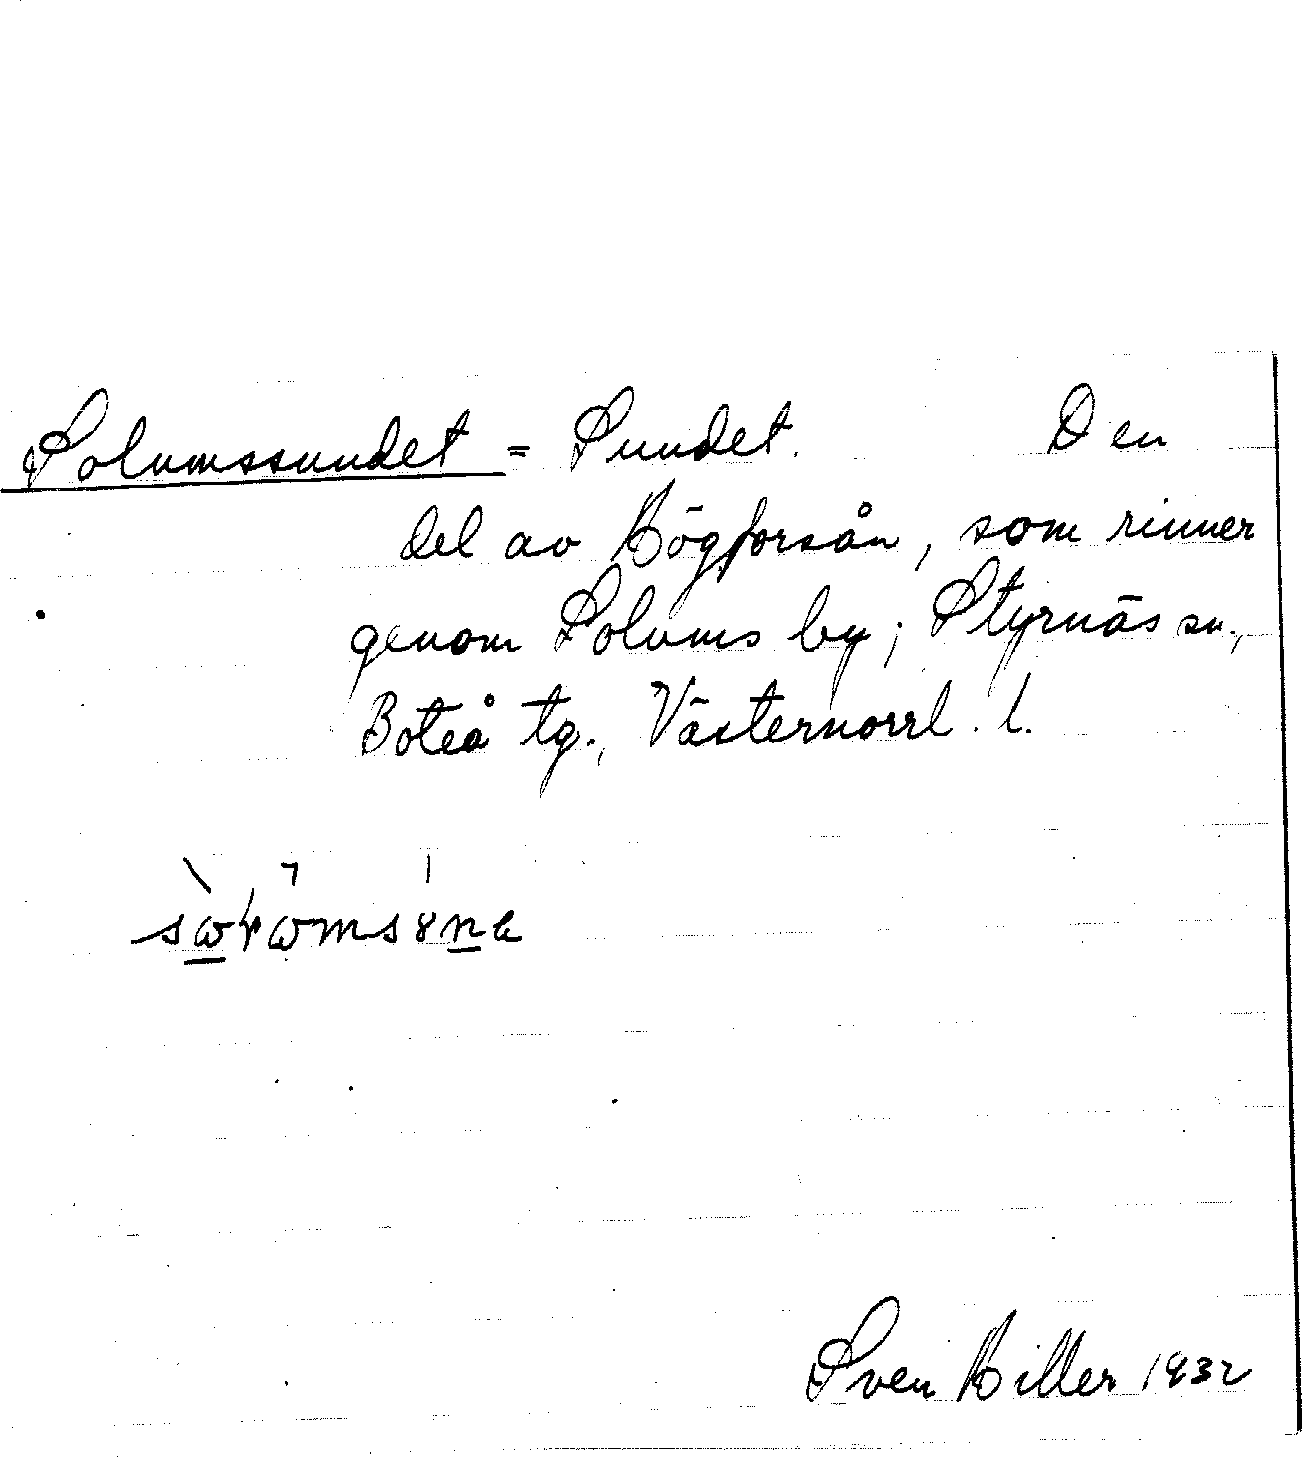 Solumssundet = Sundet. Den
del av Högforsån, som rinner
genom Solums by; Styrnäs sn.,
Boteå tg., Västernorrl. l.
Sven Hiller 1932